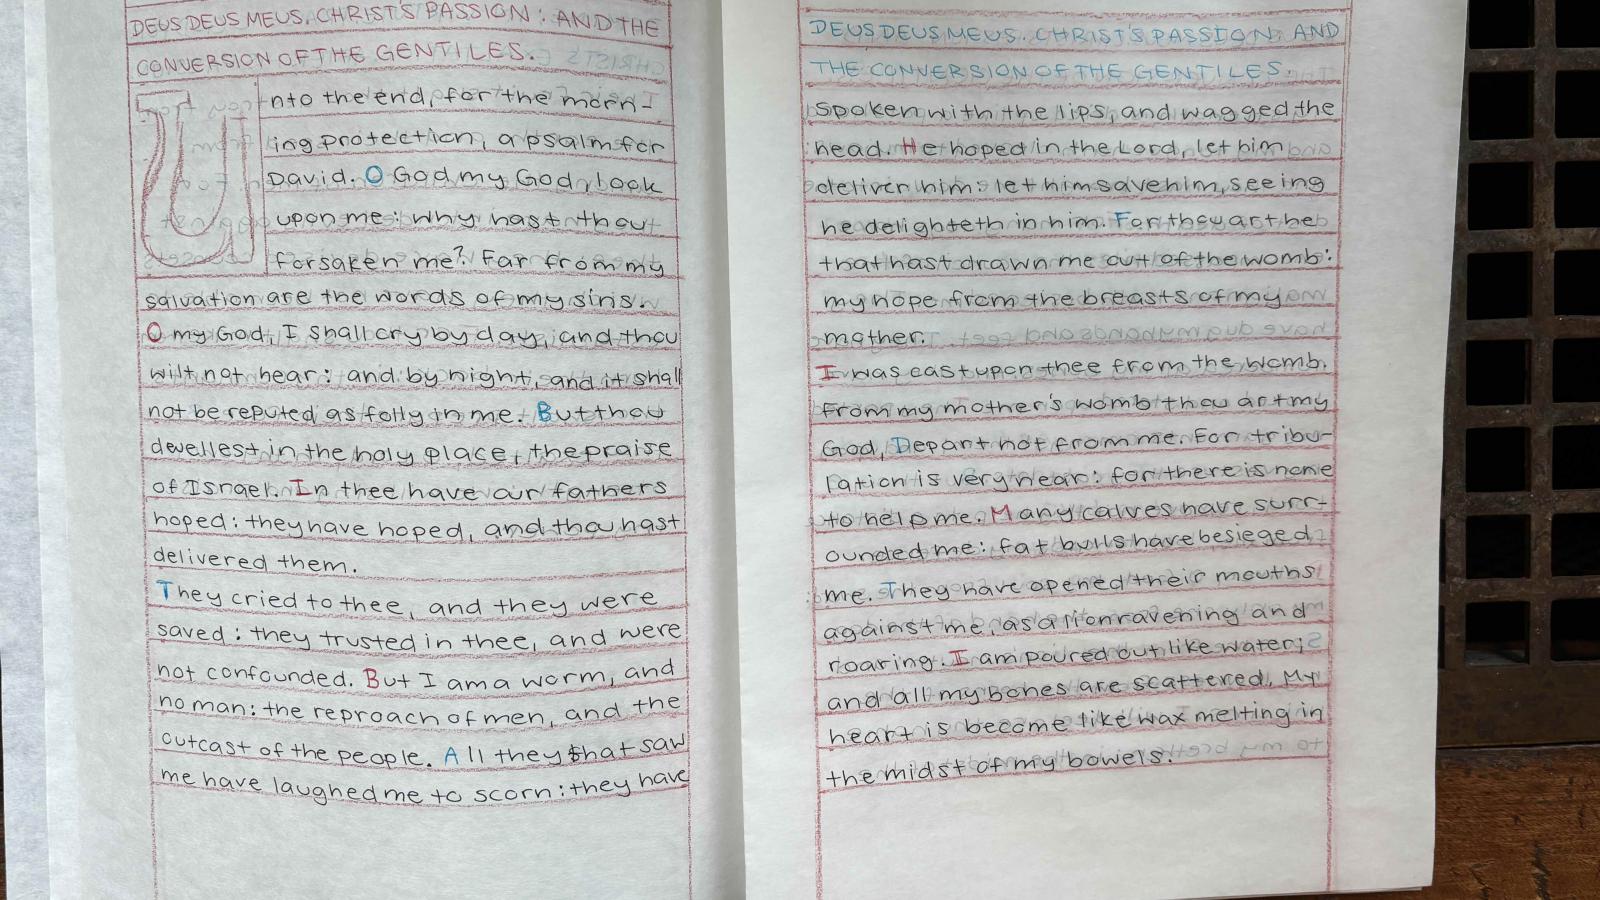 DEUS DEUS MEUS. CHRIST'S PASSION: AND THE
CONVERSION OF THE GENTILES.
Unto the end, for the morn-
ing protection, a psalm for
David. O God my God, look
upon me: why hast thou
forsaken me? Far from my
salvation are the words of my sins.
O my God, I shall cry by day, and thou
wilt not hear: and by night, and it shall
not be reputed as folly in me. But thou
dwellest in the holy place, the praise
of Israel. In thee have our fathers
hoped: they have hoped, and thou hast
delivered them.
They cried to thee, and they were
saved: they trusted in thee, and were
not confounded. But I am a worm, and
no man: the reproach of men, and the
outcast of the people. All they that saw
me have laughed me to scorn: they have
DEUS DEUS MEUS. CHRIST'S PASSION: AND
THE CONVERSION OF THE GENTILES.
spoken with the lips, and wagged the
head. He hoped in the Lord, let him
deliver him: let him save him, seeing
he delighteth in him. For thou art he
that hast drawn me out of the womb:
my hope from the breasts of my
mother.
I was cast upon thee from the womb.
From my mother's womb thou art my
God, Depart not from me. For tribu-
lation is very near: for there is none
to help me. Many calves have surr-
ounded me: fat bulls have besieged
me. They have opened their mouths
against me, as a lion ravening and
roaring. I am poured out like water;
and all my bones are scattered. My
heart is become like wax melting in
the midst of my bowels.